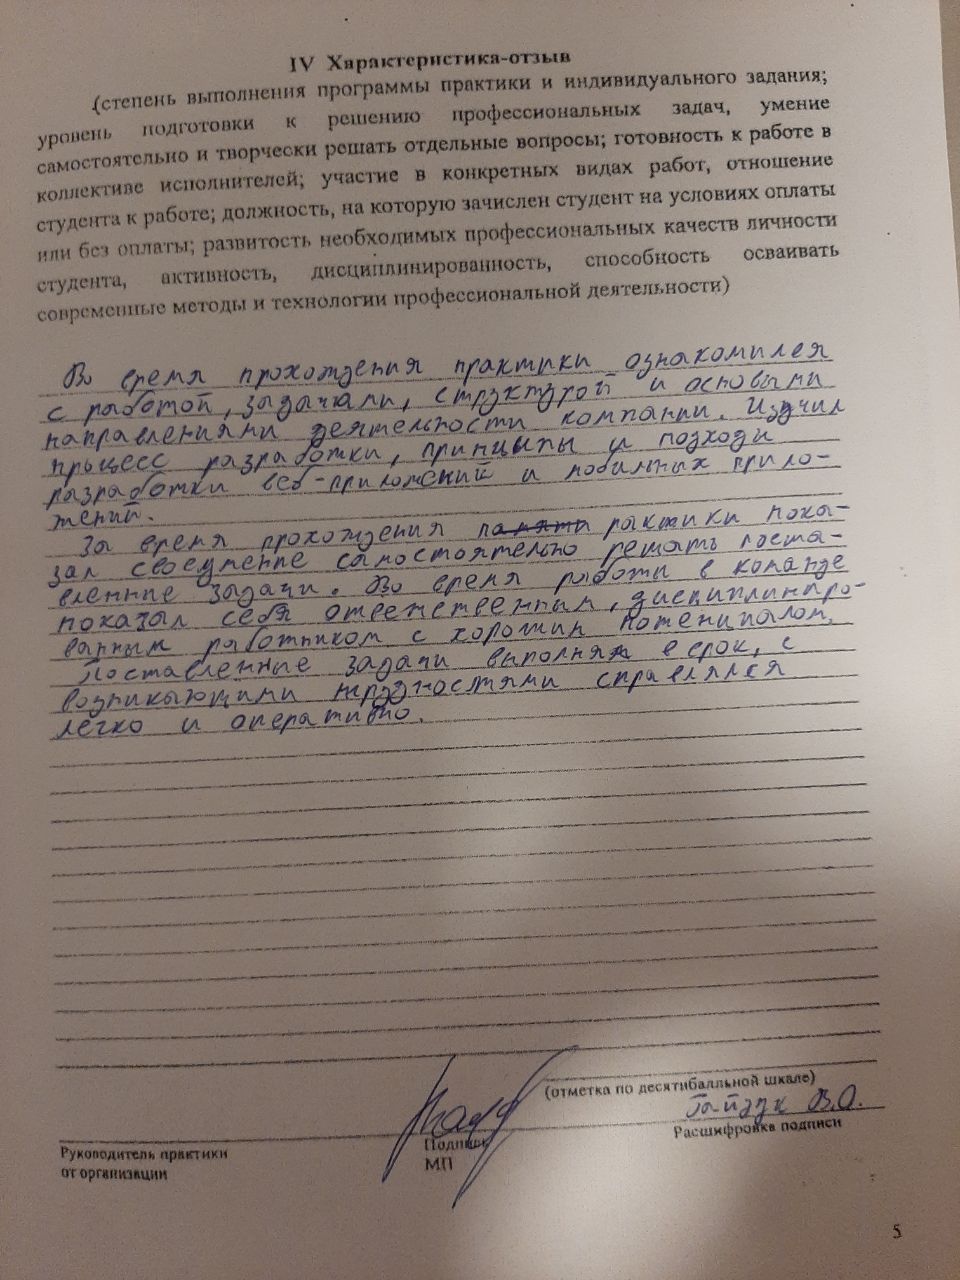 IV Характеристика-отзыв
(степень выполнения программы практики и индивидуального задания;
уровень подготовки к решению профессиональных задач, умение
самостоятельно и творчески решать отдельные вопросы; готовность к работе в
коллективе исполнителей; участие в конкретных видах работ, отношение
студента к работе; должность, на которую зачислен студент на условиях оплаты
или без оплаты; развитость необходимых профессиональных качеств личности
студента, активность, дисциплинированность, способность осваивать
современные методы и технологии профессиональной деятельности)
Во время прохождения практики ознакомился
с работой, задачами, структурой и основыми
направлениями деятельности компании. Изучил
процесс разработки, принципы и подходы
разработки веб-приложений и мобильных прило-
жений.
За время прохождения рактики пока-
зал своеумение самостоятельно решать поста-
вленные задачи. Во время работы в команде
показал себя ответственным, дисциплиниро-
ванным работником с хорошим потенциалом.
Поставленные задачи выполнял в срок, с
возникающими трудностями справлялся
легко и оперативно.
(отметка по десятибалльной шкале)
Гайдук В.О.
Руководитель практики
от организации
Подпись
МП
Расшифровка подписи
5